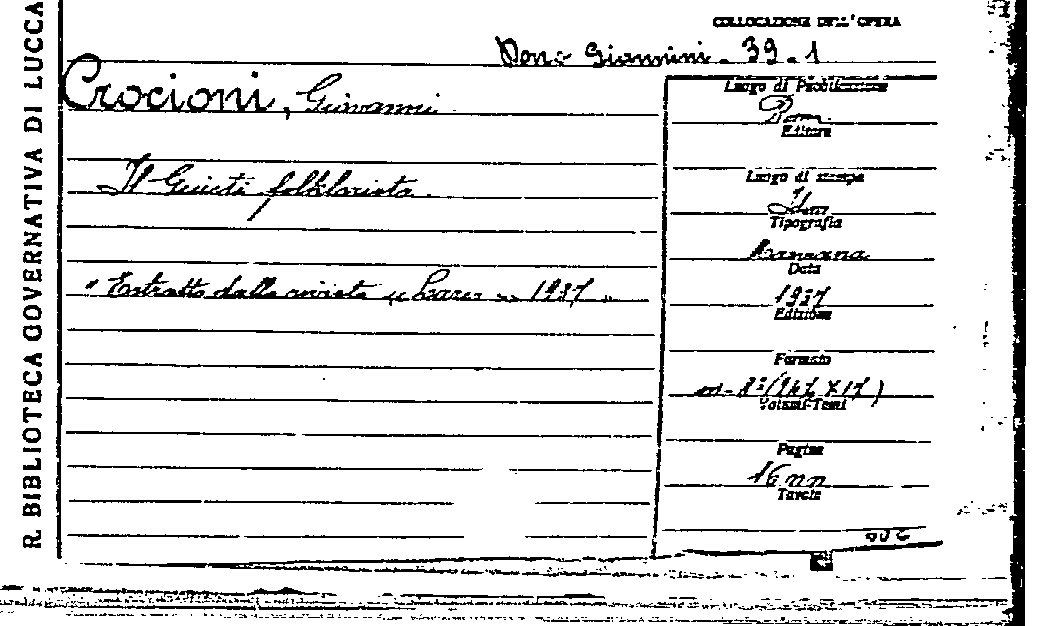 R. BIBLIOTECA GOVERNATIVA DI LUCCA
COLLOCAZIONE DELL'OPERA
Dono Giannini - 39 - 1
Crocioni, Giovanni
Il Giusti folklorista.
"Estratto dalla rivista « Lares » 1937"
Luogo di Pubblicazione
Roma
Editore
Luogo di stampa
Tipografia
Data
1937
Edizione
Formato
in-8°(247 X 17)
Volumi-Tomi
Pagine
16 nn
Tavole